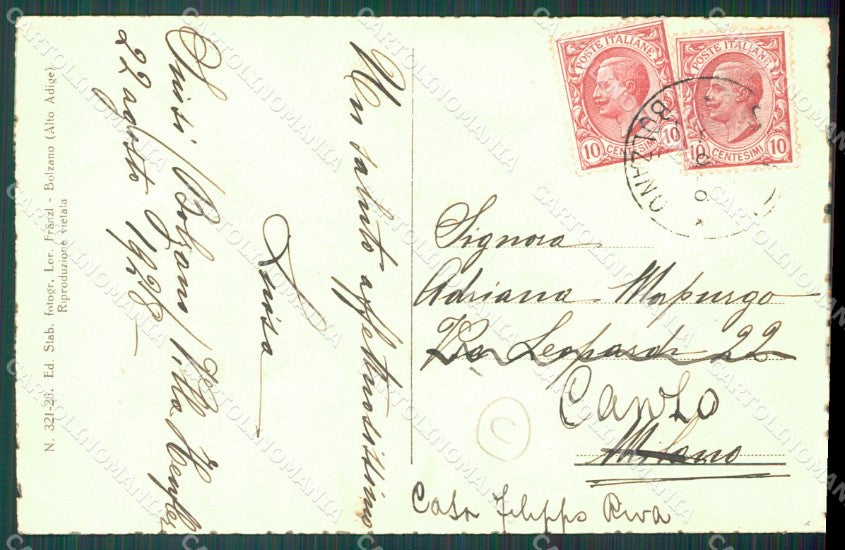 N. 321-28. Ed. Stab. fotogr. Lor. Fränzl - Bolzano (Alto Adige)
Riproduzione vietata
/Bolzano/ Villa
22 agosto 1928
Un saluto affettuosissimo
Luisa
POSTE ITALIANE
10 CENTESIMI 10
POSTE ITALIANE
10 CENTESIMI 10
BOLZANO
Signora
Adriana Morpurgo
Via Leopardi 22
CANZO
Milano
Casa Filippo Riva
C
CARTOLINOMANIA